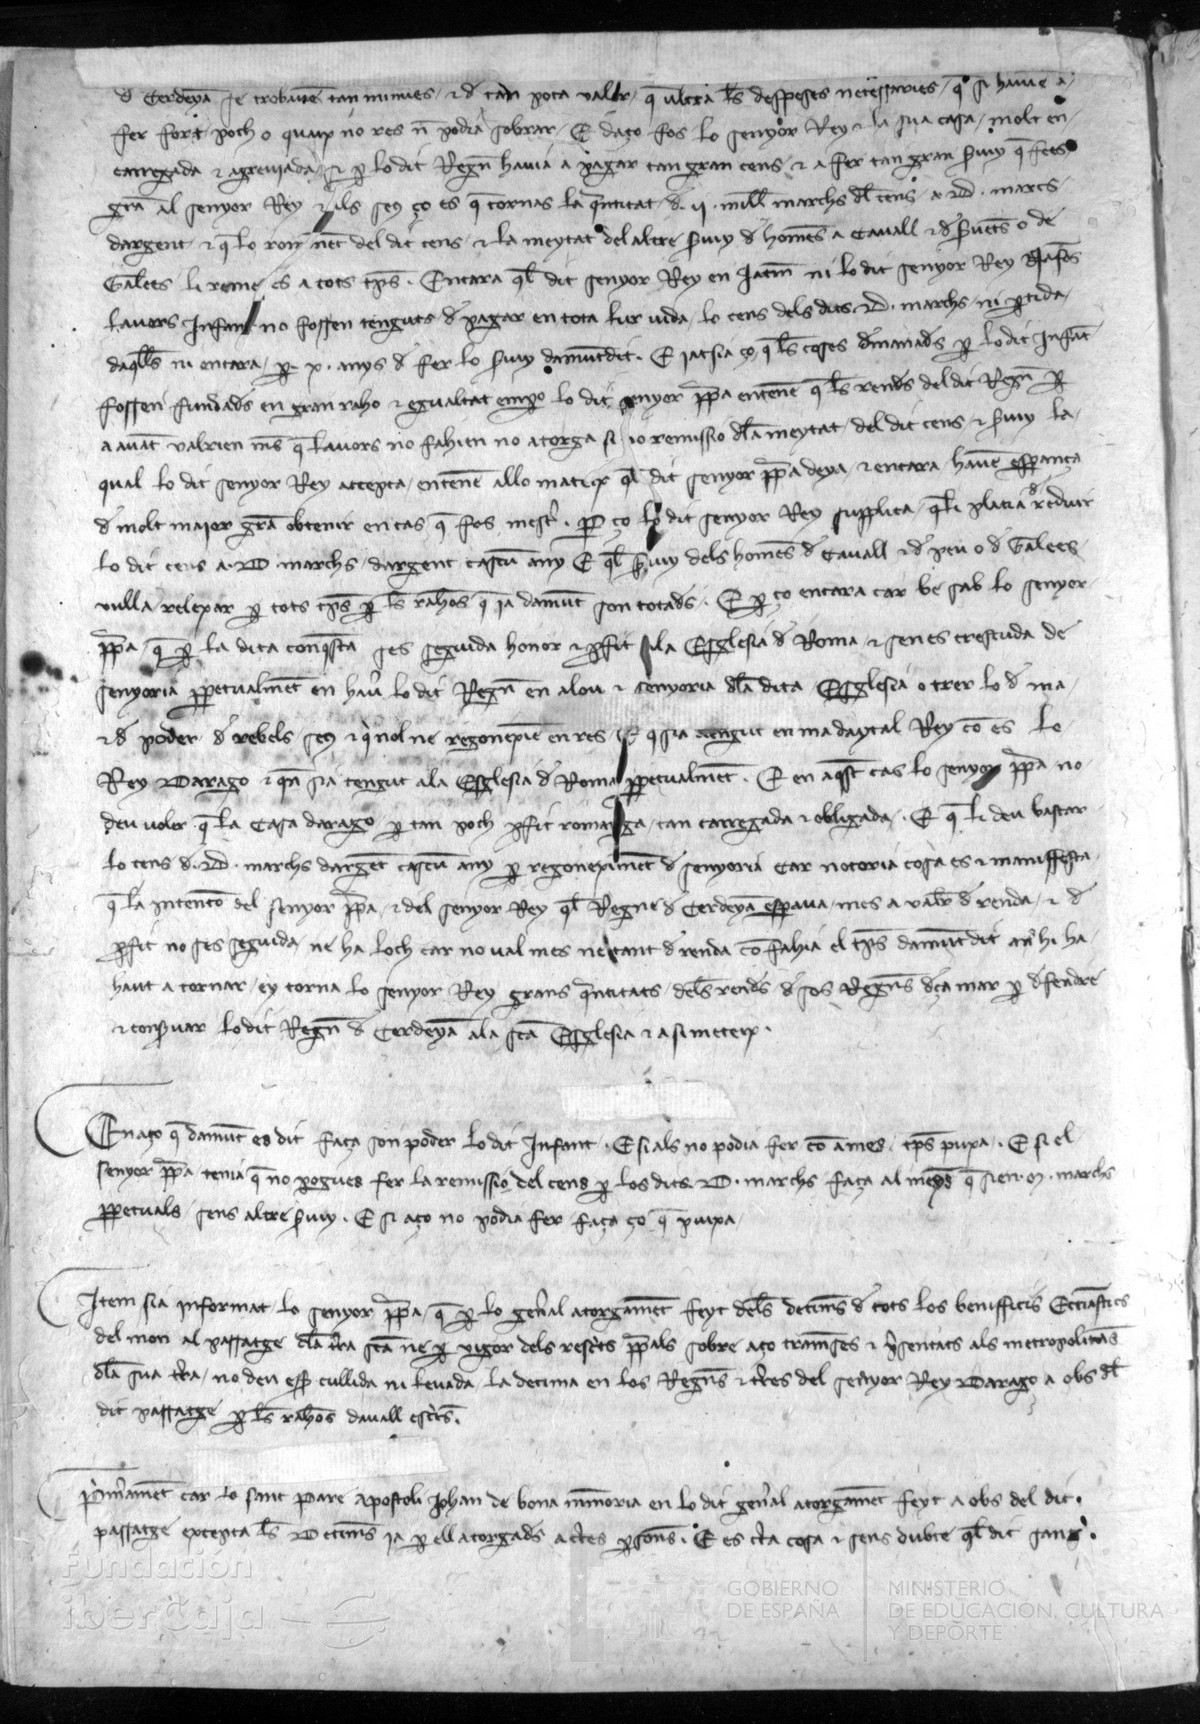 d Cerdeya se trobaren tan minues / et d tan poca valor / q ultra les despeses necessaries / q si havie a /
fer fort poch o quaix no res nn podia sobrar / E daço fos lo senyor Rey et la sua casa / molt en
carregada et agreujada / si per lo dit Regn havia a pagar tan gran cens et a fer tan gran servey q fees
gra al senyor Rey et als seus ço es q tornas la quantitat d ij mill marchs del cens a D marcs
dargent et q lo romanent del dit cens et la meytat del altre servey d homens a cavall et d servents o de
Galees li remes a tots temps . Encara quel dit senyor Rey en Jacm ni lo dit senyor Rey Nalfos
lavors Infant no fossen tenguts d pagar en tota lur vida / lo cens dels dits D marchs ni partida /
daquells ni encara per x anys d fer lo servey damuntdit . E jatsia ço q les coses dmanads per lo dit Infant
fossen fundads en gran raho et egualtat empero lo dit senyor ppa entenen q les rends del dit Regn per
a avant valrien mes q lavors no fahien no atorga si no remissio dla meytat del dit cens et servey la
qual lo dit senyor Rey accepta / entenen allo mateix quel dit senyor ppa deya / et encara / haven esperança
d molt major gra obtenir en cas q fos mester . Per ço lo dit senyor Rey supplica / quel li placia d reduir
lo dit cens a D marchs dargent cascun any E quel servey dels homens d cavall et d peu o d Galees
vulla relexar per tots temps per les rahons q ja damunt son totads . E per ço encara car be sab lo senyor
ppa / q per la dita conquesta ses seguida honor et profit a la Esglesia d Roma et sen es crescuda de
senyoria perpetualment en haver lo dit Regn en alou et senyoria dla dita Esglesia o trer lo d ma /
et d poder d rebels seus et qui nol ne regonexien en res et q sia tengut en ma daytal Rey com es lo
Rey Darago et qn sia tengut ala Esglesia d Roma perpetualment . E en aquest cas lo senyor ppa no
deu voler q la casa darago per tan poch profit romanga / tan carregada et obligada . E q li deu bastar
lo cens d D marchs dargent cascun any per regoneximent d senyoria car notoria cosa es et maniffesta
q la intencio del senyor ppa / et del senyor Rey quel Regne d Cerdeya esperava / mes a valer d renda / et d
profit no ses seguida / ne ha loch car no val mes ne tant d renda com fahia el temps damuntdit ans hi ha
haut a tornar / ey torna lo senyor Rey grans quantitats dels rends d sos Regns dça mar per dfendre
et conservar lo dit Regn d Cerdeya ala sca Esglesia et a si meteix .
En aço q damunt es dit faça son poder lo dit Infant . E si als no podia fer com a mes / temps puxa . E si el
senyor ppa tenia q no pogues fer la remissio del cens per los dits D marchs faça al menys q sien M marchs
perpetuals / sens altre servey . E si aço no podia fer faça ço q puixa /
Item sia informat lo senyor ppa / q per lo general atorgament feyt dels decims d tots los beniffcis Ecclastics
del mon al passatge dla terra sca ne per vigor dels rescrits ppals sobre aço trameses et presentats als metropolitans
dla sua terra / no deu esser cullida ni levada la decima en los Regns et terres del senyor Rey Darago a obs del
dit passatge per les rahons davall escrits .
Primerament car lo sant Pare apostoli Johan de bona memoria en lo dit general atorgament feyt a obs del dit .
passatge excepta les Decims ja per ell atorgads a certes persons . E es certa cosa et sens dubte quel dit sant .
Fundación
iberCaja
GOBIERNO
DE ESPAÑA
MINISTERIO
DE EDUCACIÓN, CULTURA
Y DEPORTE